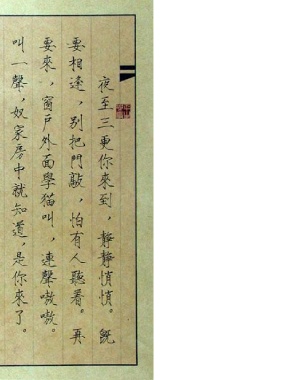 夜至三更你來到，靜靜悄悄。既
要相逢，別把門敲，怕有人聽着。再
要來，窗戶外面學猫叫，連聲嗷嗷。
叫一聲，奴家房中就知道，是你來了。